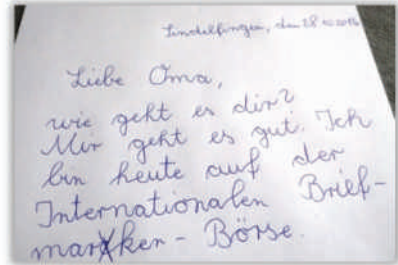 Sindelfingen, den
Liebe Oma,
wie geht es dir?
Mir geht es gut. Ich
bin heute auf der
Internationalen Brief-
marken - Börse.